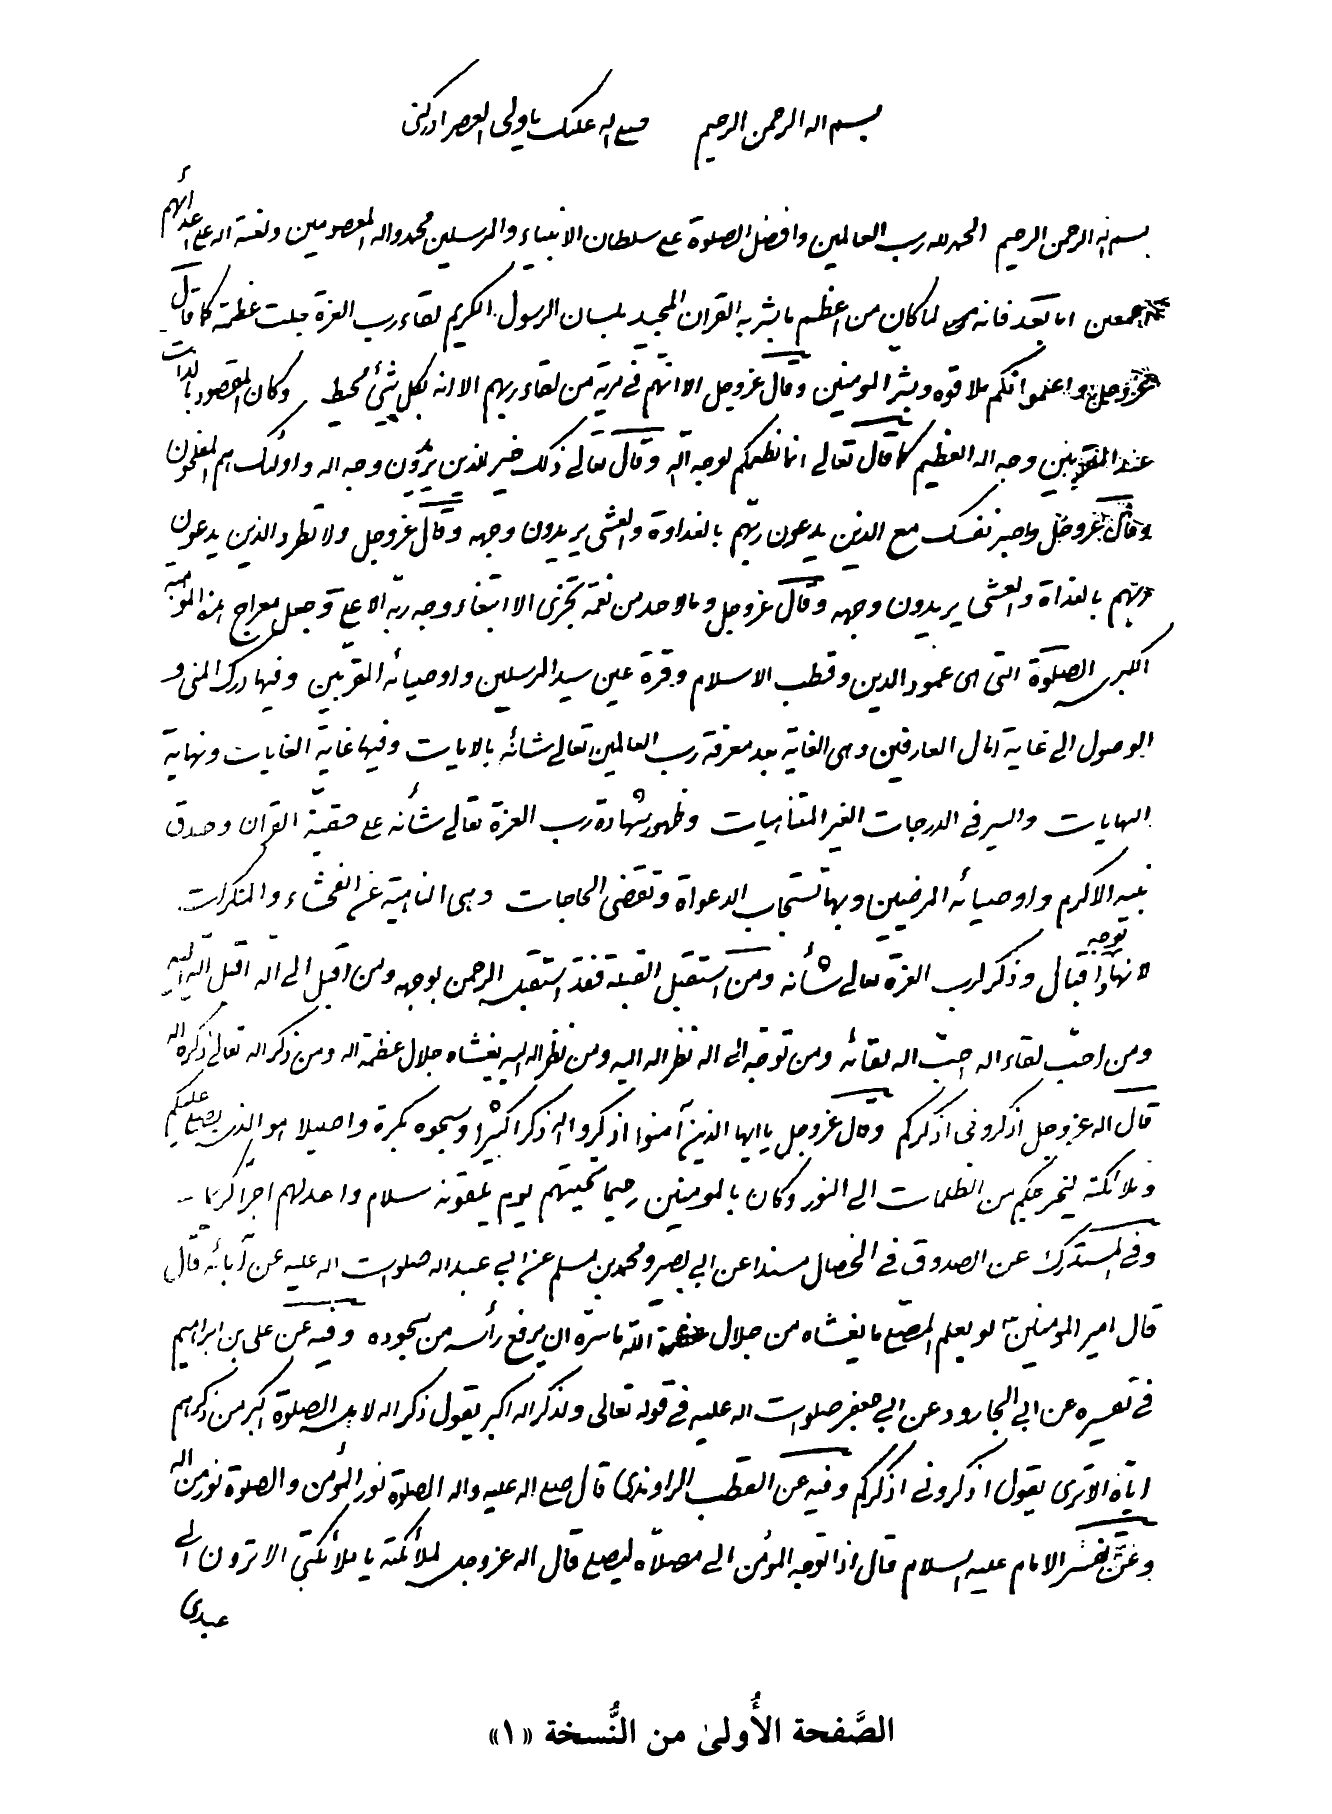 بسم اله الرحمن الرحیم صلی اله علیک یا ولی العصر ادرکنی
بسم اله الرحمن الرحیم الحمد لله رب العالمین وافضل الصلوة علی سلطان الانبیاء والمرسلین محمد واله المعصومین ولعنة اله علی اعدائهم
اجمعین اما بعد فانه لما کان من اعظم ما بشر به القران المجید بلسان الرسول الکریم لقاء رب العزة جلت عظمته کما قال
عزوجل واعلموا انکم ملاقوه وبشر المومنین وقال عزوجل الا انهم فی مریة من لقاء ربهم الا انه بکل شیء محیط وکان المقصود بالذات
عند المقربین وجه اله العظیم کما قال تعالی انما نطعمکم لوجه الله وقال تعالی ذلک خیر للذین یریدون وجه اله واولئک هم المفلحون
وقال عزوجل واصبر نفسک مع الذین یدعون ربهم بالغداوة والعشی یریدون وجهه وقال عزوجل ولا تطرد الذین یدعون
ربهم بالغداة والعشی یریدون وجهه وقال عزوجل وما لاحد من نعمة تجزی الا ابتغاء وجه ربه الاعلی وجعل معراج هذه الموهبة
الکبری الصلوة التی هی عمود الدین وقطب الاسلام وقرة عین سید المرسلین واوصیائه المقربین وفیها درک المنی و
الوصول الی غایة امال العارفین وهی الغایة بعد معرفة رب العالمین تعالی شانه بالایات وفیها غایة الغایات ونهایة
النهایات والسیر فی الدرجات الغیر المتناهیات وظهور شهادة رب العزة تعالی شأنه علی حقیة القران وصدق
نبیه الاکرم واوصیائه المرضیین وبها تستجاب الدعواة وتقضی الحاجات وهی الناهیة عن الفحشاء والمنکرات
لانها توجه واقبال وذکر لرب العزة تعالی شأنه ومن استقبل القبلة فقد استقبل الرحمن بوجهه ومن اقبل الی اله اقبل اله الیه
ومن احب لقاء اله احب اله لقائه ومن توجه الی اله نظر اله الیه ومن نظر اله الیه یغشاه جلال عظمة اله ومن ذکر اله تعالی ذکره اله
قال اله عزوجل اذکرونی اذکرکم وقال عزوجل یا ایها الذین آمنوا اذکروا اله ذکرا کثیرا وسبحوه بکرة واصیلا هو الذی یصلی علیکم
وملائکته لیخرجکم من الظلمات الی النور وکان بالمومنین رحیما تحیتهم یوم یلقونه سلام واعد لهم اجرا کریما
وفی المستدرک عن الصدوق فی الخصال مسندا عن ابی بصیر ومحمد بن مسلم عن ابی عبد اله صلوات اله علیه عن آبائه قال
قال امیر المومنین لو یعلم المصلی ما یغشاه من جلال الله ما سره ان یرفع رأسه من سجوده وفیه عن علی بن ابراهیم
فی تفسیره عن ابی الجارود عن ابی جعفر صلوات اله علیه فی قوله تعالی ولذکر اله اکبر یقول ذکر اله لاهل الصلوة اکبر من ذکرهم
ایاه الا تری یقول اذکرونی اذکرکم وفیه عن القطب الراوندی قال صلی اله علیه واله الصلوة نور المؤمن والصلوة نور من اله
وعن تفسیر الامام علیه السلام قال اذا توجه المؤمن الی مصلاه لیصلی قال اله عزوجل لملائکته یا ملائکتی الا ترون الی
عبدی
الصَّفحة الأُولىٰ من النُّسخة «١»